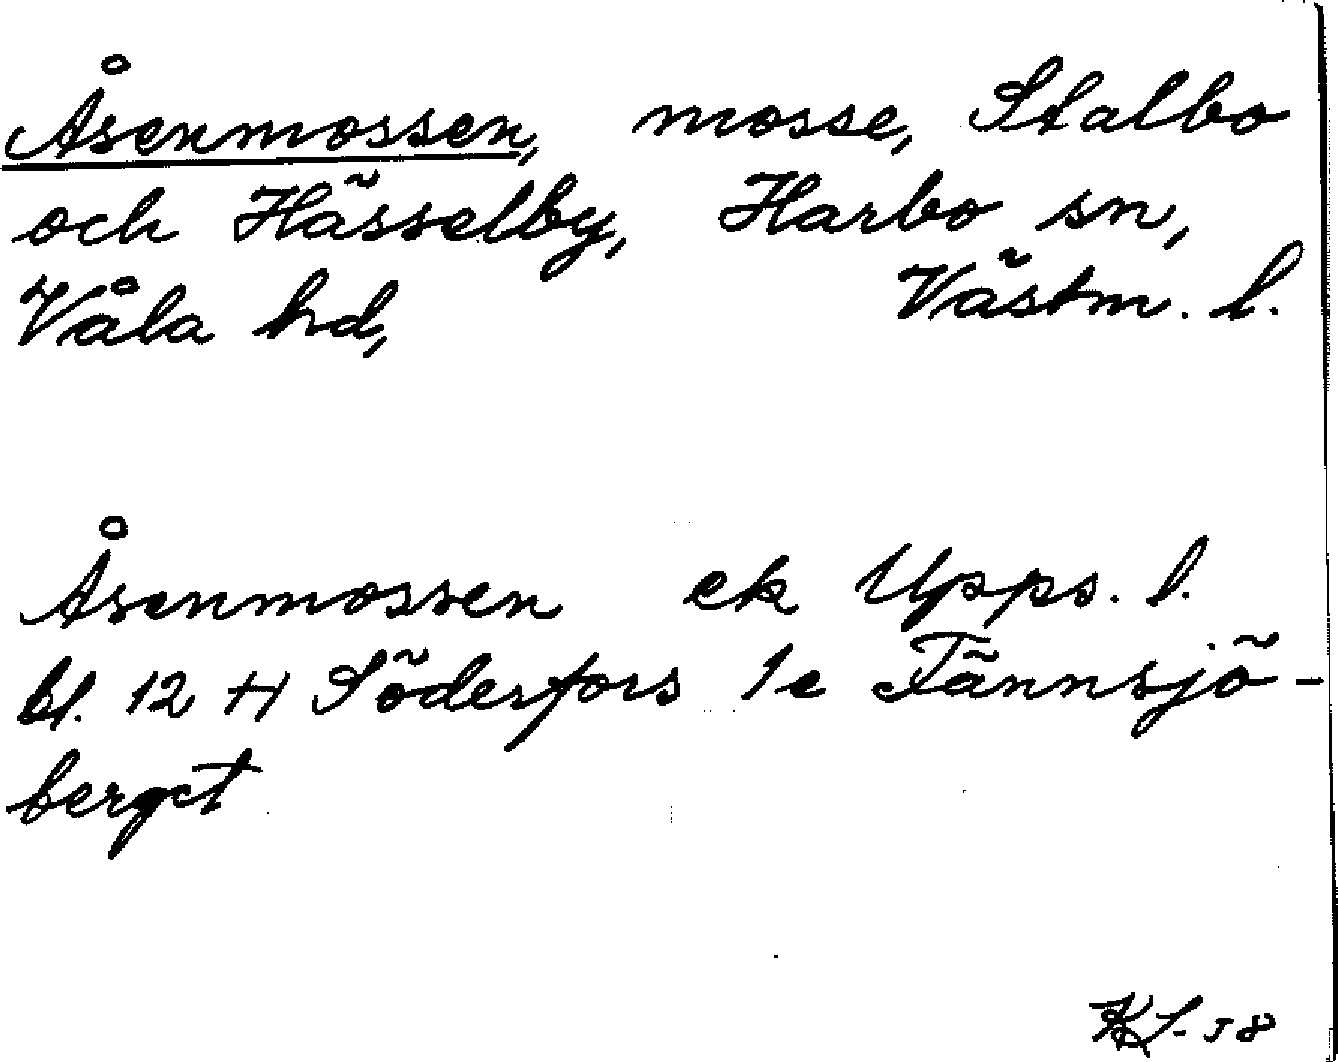 Åsenmossen, mosse, Stalbo
och Hässelby, Harbo sn,
Våla hd, Västm. l.
Åsenmossen ek Upps. l.
bl. 12 H Söderfors 1e Tännsjö-
berget
KL-58